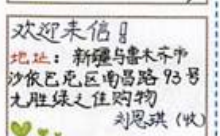 欢迎来信！
地址：新疆乌鲁木齐市
沙依巴克区南昌路93号
九胜绿之佳购物
刘思琪（收）